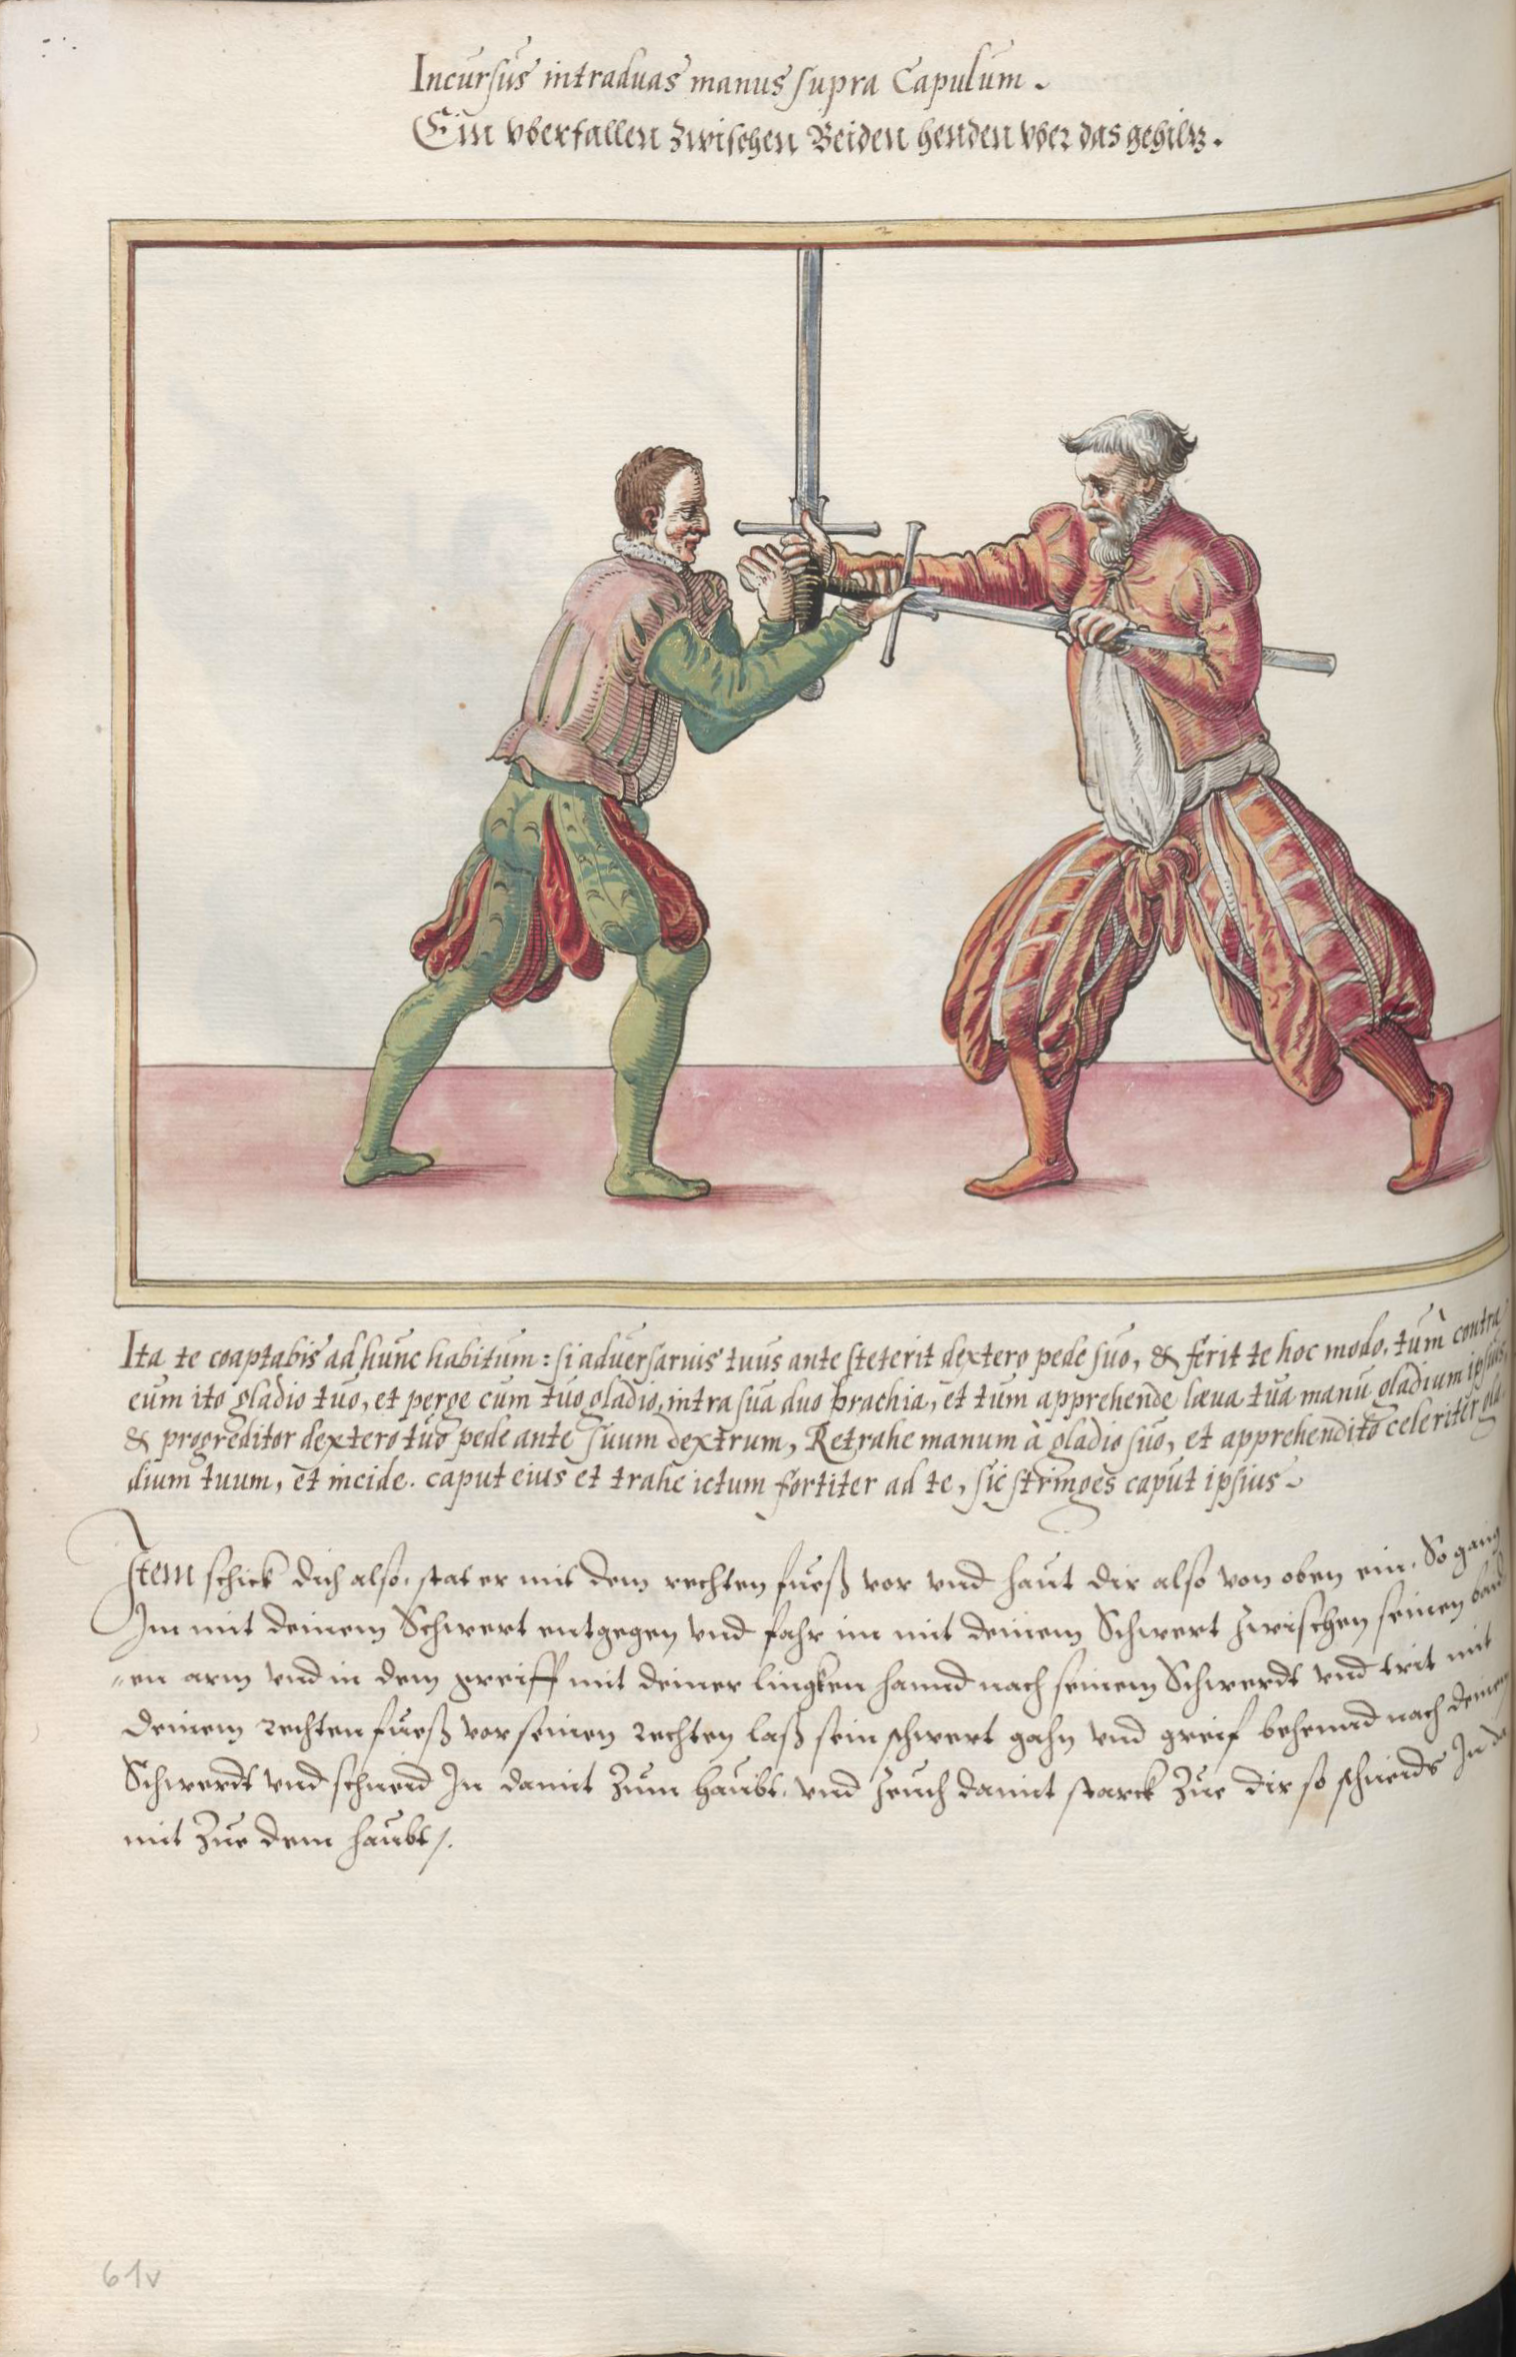 Incursus intra duas manus supra Capulum.
Ein vberfallen zwischen Beiden henden vber das gehiltz.
Ita te coaptabis ad hunc habitum: si aduersarius tuus ante steterit dextero pede suo, & ferit te hoc modo, tum contra
eum ito gladio tuo, et perge cum tuo gladio, intra sua duo brachia, et tum apprehende læva tua manu gladium ipsius,
& progreditor dextero tuo pede ante suum dextrum, Retrahe manum à gladio suo, et apprehendito celeriter gla-
dium tuum, et incide. caput eius et trahe ictum fortiter ad te, sic stringes caput ipsius
Item schick dich also, stat er mit dem rechten fuess vor vnd haut dir also von oben ein. So gang
Im mit deinem Schwert entgegen vnd fahr im mit deinem Schwert zwischen seinen baid
"en arm vnd in dem greiff mit deiner lingken hannd nach seinem Schwerdt vnd trit mit
deinem rechten fuess vor seinen rechten lass sein schwert gahn vnd greif behennd nach deinem
Schwerdt vnd schneid In damit zum haubt. vnd zeuch damit starck zue dir so schneids In da
mit zue dem haubt /.
61v